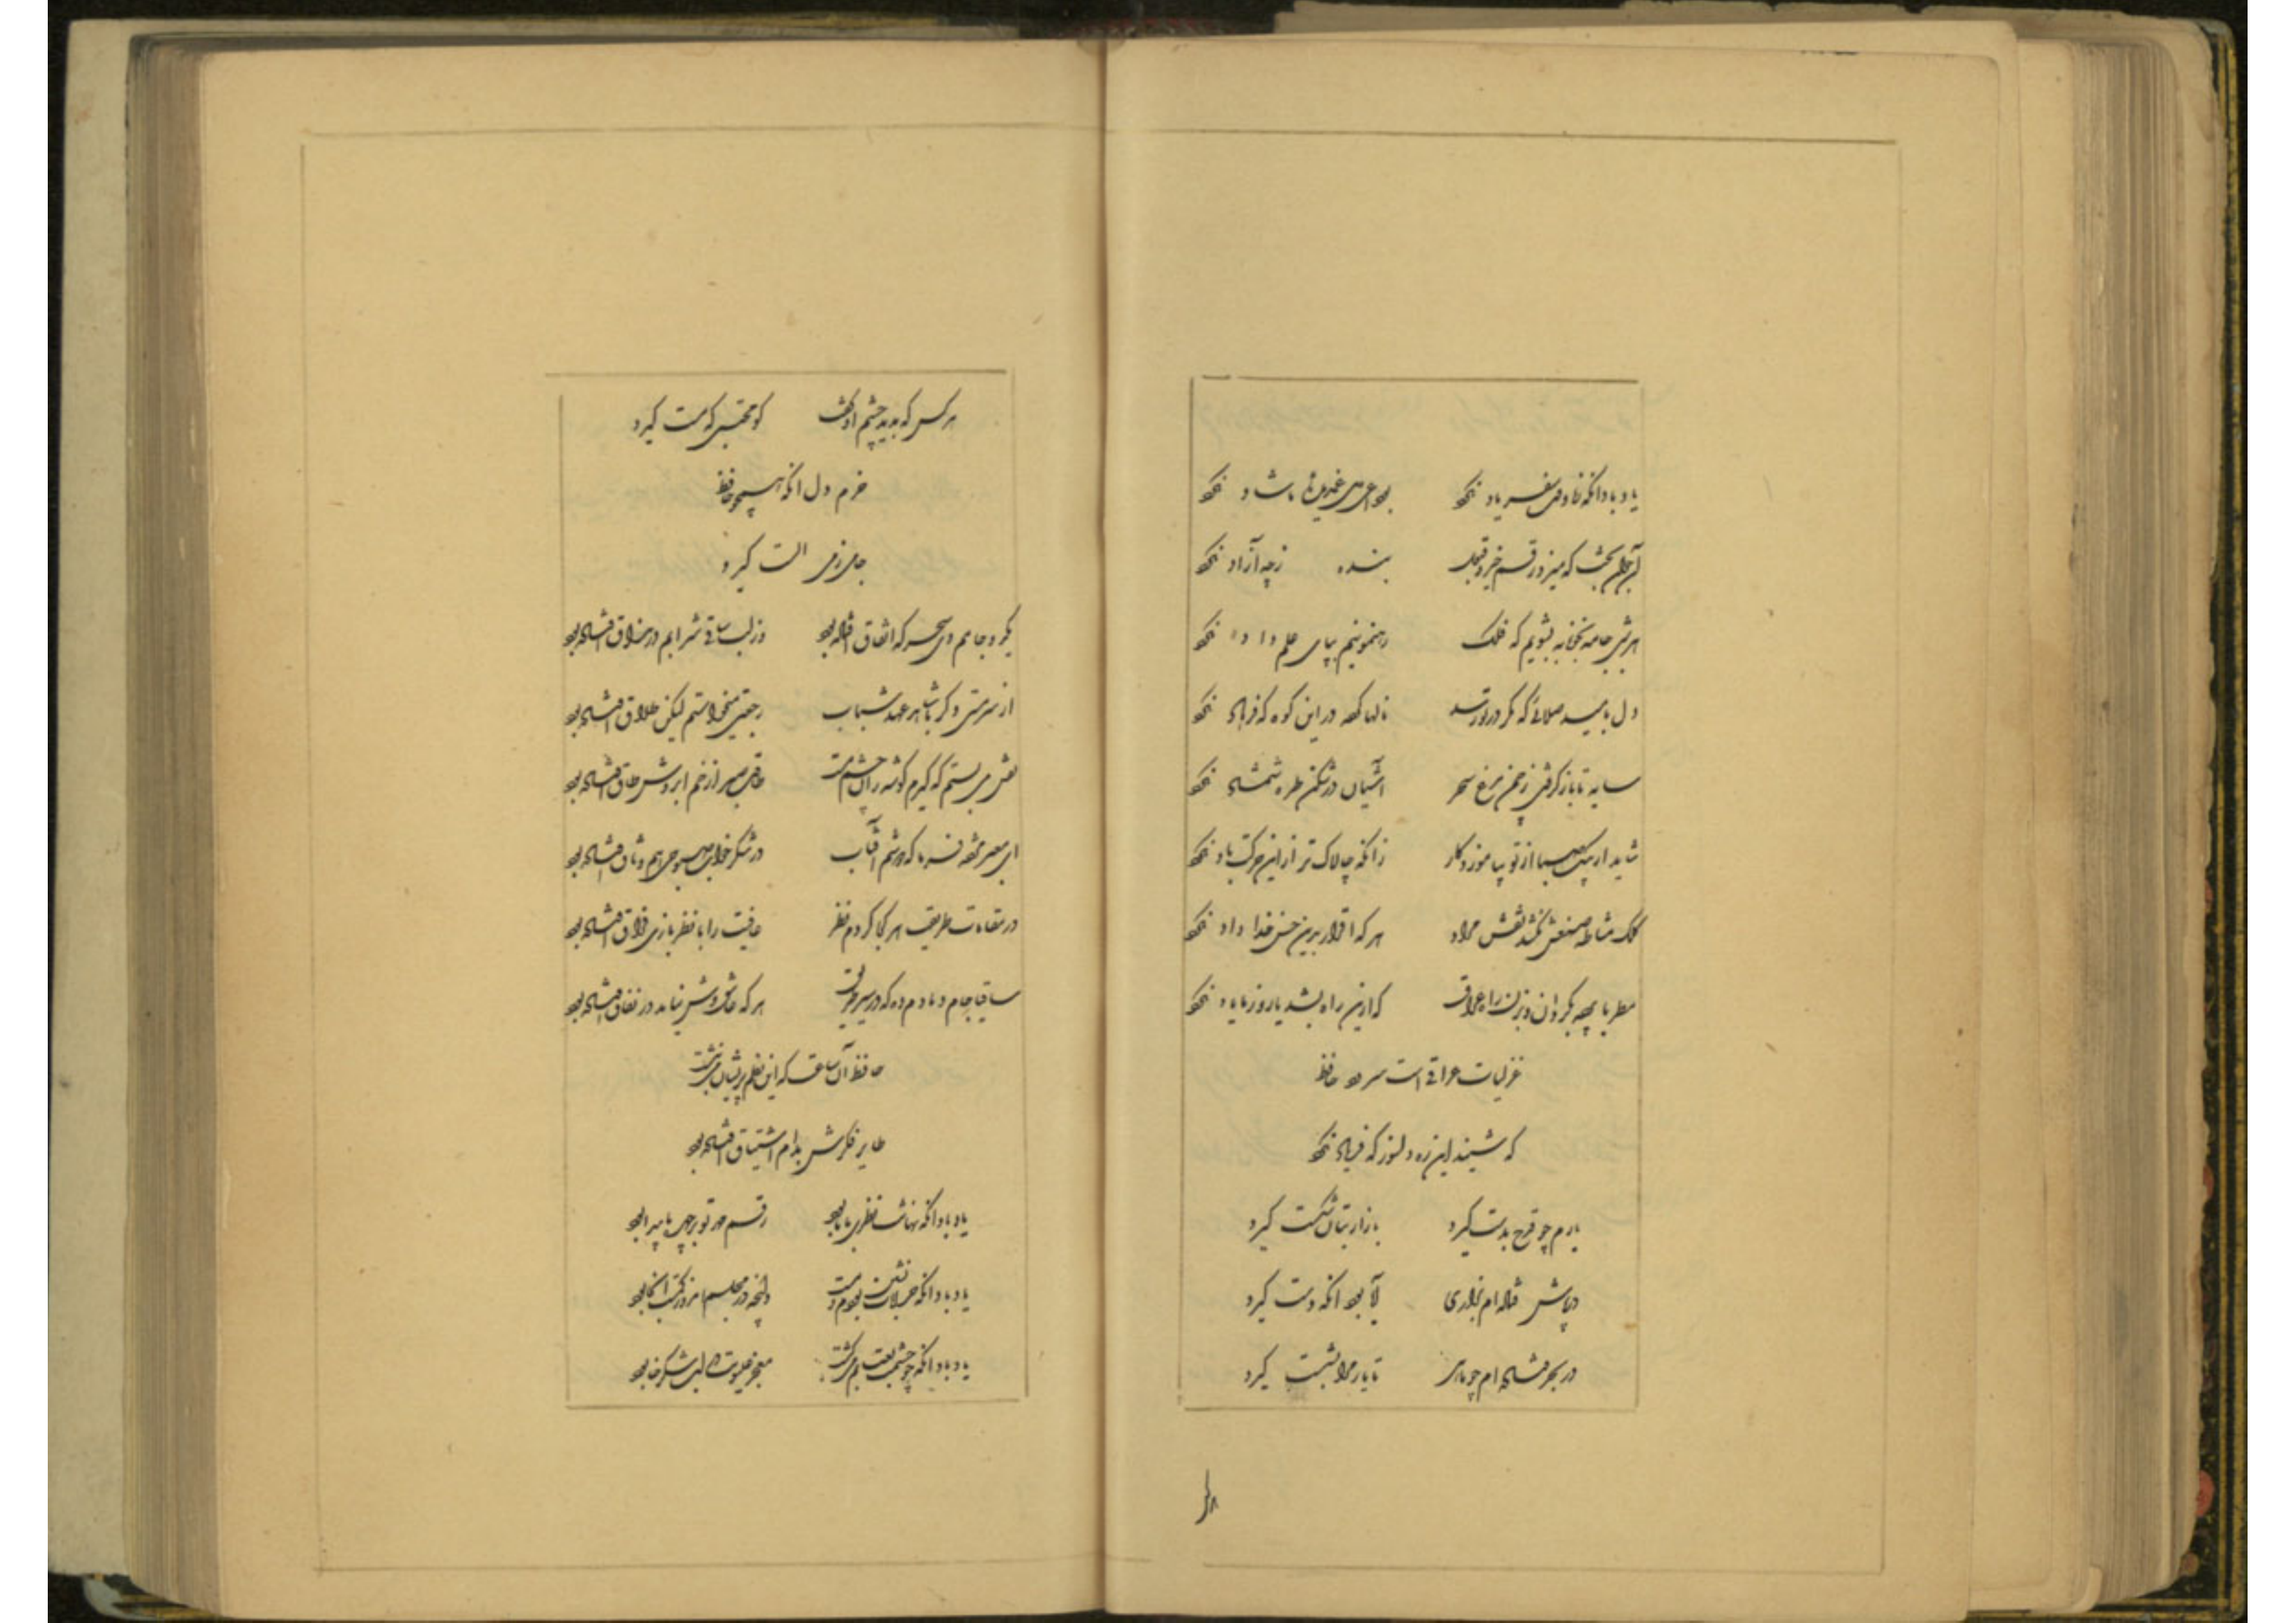 یاد باد آنکه ز ما وقت سفر یاد نکرد بوداعی دل غمدیدهٔ ما شاد نکرد
آن جوانبخت که میزد رقم خیر و قبول بنده پیر ز چه آزاد نکرد
بشویم که فلک رهنمونیم بپای علم داد نکرد
دل بامید صدائی که مگر در تو رسد نالها کرد در این کوه که فرهاد نکرد
سایه تا باز گرفتی ز چمن مرغ سحر آشیان در شکن طره شمشاد نکرد
شاید ار پیک صبا از تو بیاموزد کار زانکه چالاک تر ازین حرکت باد نکرد
کلک مشاطه صنعش نکشد نقش مراد هر که اقرار بدین حسن خدا داد نکرد
مطربا پرده بگردان و بزن راه عراق که ازین راه بشد یار و ز ما یاد نکرد
غزلیات عراقی است سرود حافظ
که شنید این ره دلسوز که فریاد نکرد
یارم چو قدح بدست گیرد بازار بتان شکست گیرد
در پاش فتاده ام بزاری آیا بود آنکه دست گیرد
در بحر فتاده ام چو ماهی تا یار مرا بشست گیرد
هر کس که بدید چشم او گفت کو محتسبی که مست گیرد
خرم دل آنکه همچو حافظ
جامی ز می الست گیرد
یک دو جامم دی سحر که اتفاق افتاده بود وز لب ساقی شرابم در مذاق افتاده بود
از سر مستی دگر با شاهد عهد شباب رجعتی میخواستم لیکن طلاق افتاده بود
نقش می بستم که گیرم گوشه زان چشم مست طاقت صبر از خم ابروش طاق افتاده بود
ای معبر مژده فرما که دوشم آفتاب در شکر خواب صبوحی هم وثاق افتاده بود
در مقامات طریقت هر کجا کردم نظر عافیت را با نظر بازی فراق افتاده بود
ساقیا جام دمادم ده که در سیر طریق هر که عاشق وش نیامد در نفاق افتاده بود
حافظ آن ساعت که این نظم پریشان می نوشت
طایر فکرش بدام اشتیاق افتاده بود
یاد باد آنکه نهانت نظری با ما بود رقم مهر تو بر چهره ما پیدا بود
یاد باد آنکه خرابات نشین بودم و مست وانچه در مجلسم امروز کمست آنجا بود
یاد باد آنکه چو چشمت بعتابم می کشت معجز عیسویت در لب شکرخا بود